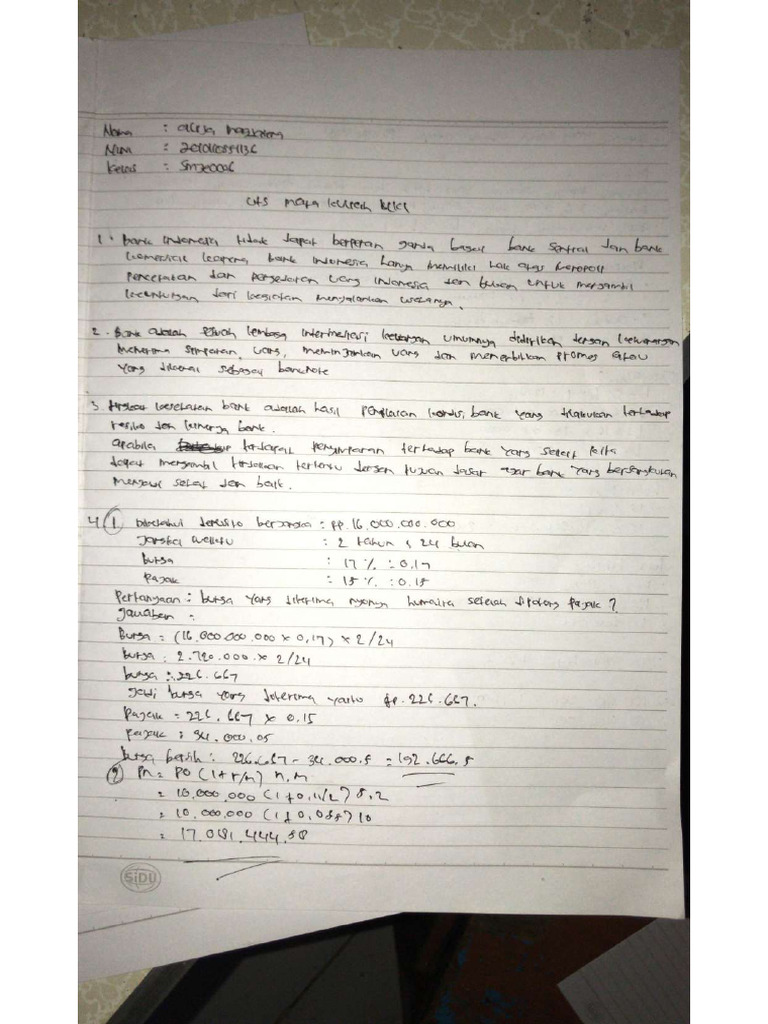 Nama :
NIM :
Kelas : SM20006
UTS Mata kuliah
1. bank indonesia tidak dapat berperan ganda bagai bank sentral dan bank
komersial karena bank indonesia hanya memiliki hak atas monopoli
pencetakan dan pengedaran uang indonesia dan bukan untuk mengambil
keuntungan dari kegiatan menjalankan
2. Bank adalah sebuah lembaga intermediasi keuangan umumnya didirikan dengan kewenangan
menerima simpanan uang, meminjamkan uang dan menerbitkan promes atau
yang dikenal sebagai banknote
3. kesehatan bank adalah hasil penilaian kondisi bank yang dilakukan terhadap
resiko dan kinerja bank.
apabila terdapat terhadap bank yang
dapat mengambil tindakan tertentu dengan tujuan dasar agar bank yang bersangkutan
menjadi sehat dan baik.
4 (1) Diketahui deposito berjangka : Rp. 16.000.000.000
Jangka waktu : 2 tahun , 24 bulan
bunga : 17 % : 0.17
Pajak : 15 % : 0.15
Pertanyaan : bunga yang diterima nyonya humaira setelah dipotong pajak ?
Jawaban :
Bunga = (16.000.000.000 x 0,17) x 2/24
bunga : 2.720.000. x 2/24
bunga : 226.667
Jadi bunga yang diterima yaitu Rp. 226.667.
Pajak = 226.667 x 0.15
pajak : 34.000.05
bunga bersih : 226.667 - 34.000.5 = 192.666.5
(2) Pn = Po (1+r/m) n.m
= 10.000.000 (1+0,11/2) 5.2
= 10.000.000 (1+0,055) 10
= 17.081.444.58
SiDU